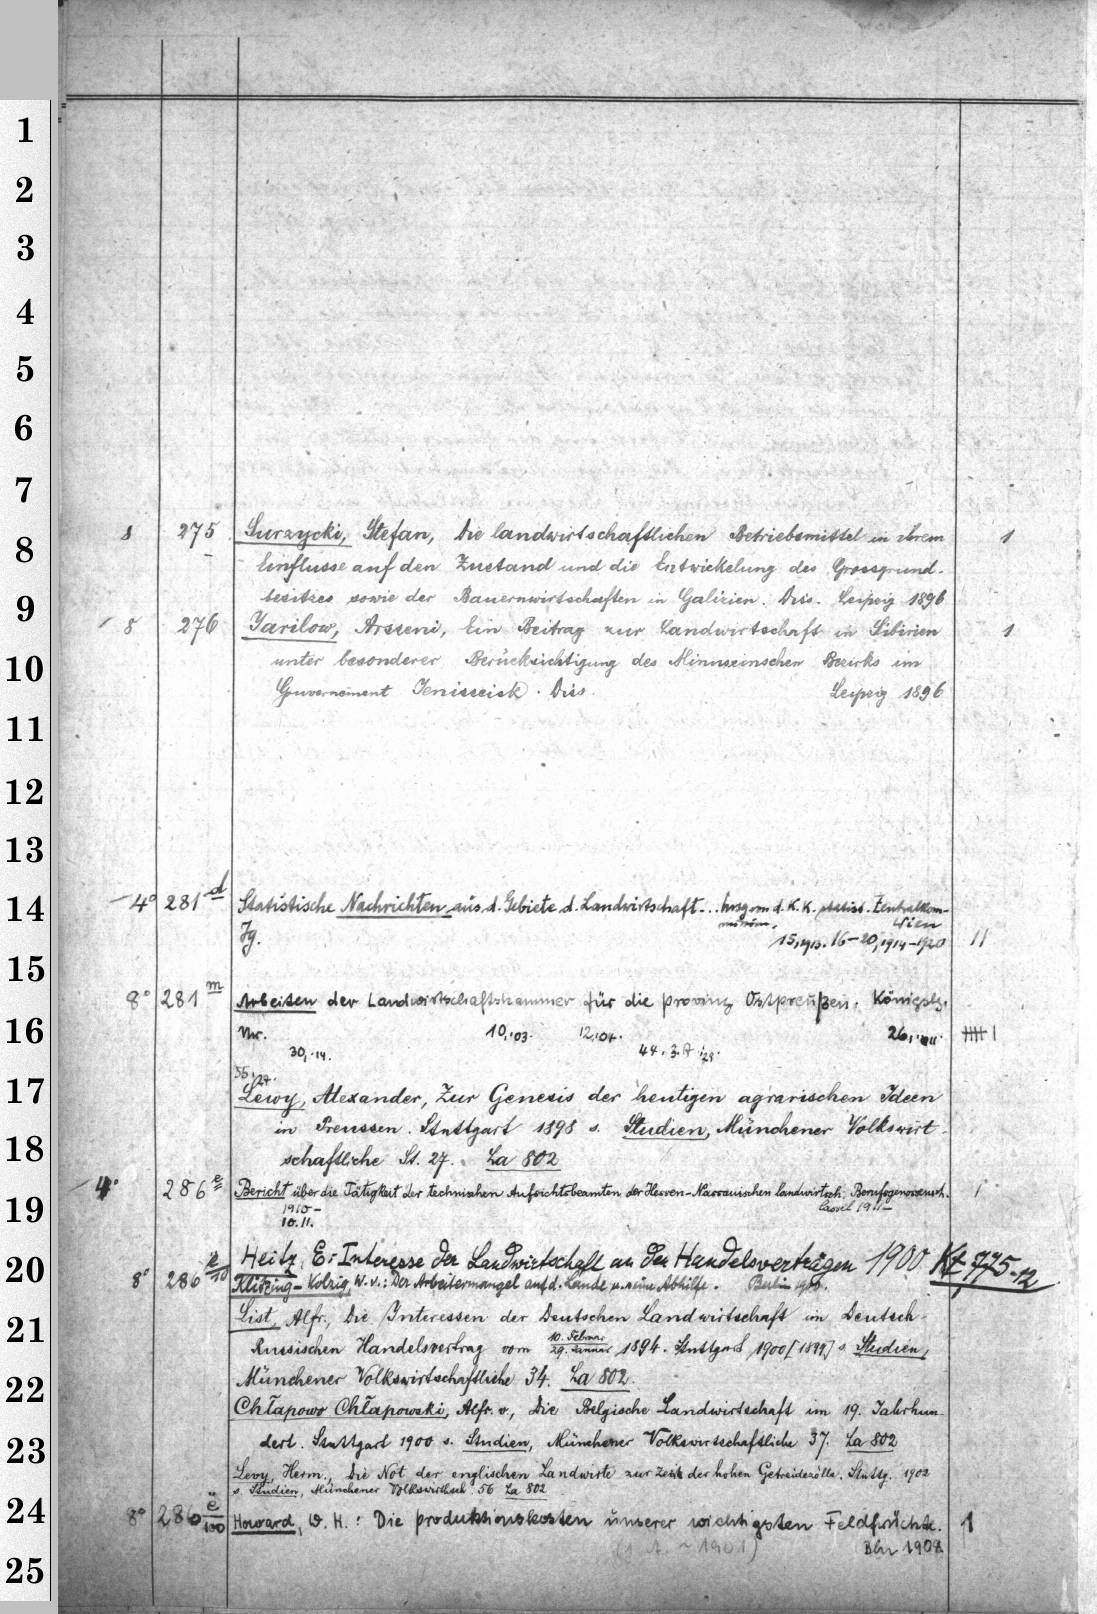 1
2
3
4
5
6
7
8 275 Surzycki, Stefan, Die landwirtschaftlichen Betriebsmittel in ihrem 1
8
Einflusse auf den Zustand und die Entwickelung des Grossgrund-
besitzes sowie der Bauernwirtschaften in Galizien. Diss. Leipzig 1896
9
8 276 Jarilow, Arsseni, Ein Beitrag zur Landwirtschaft in Sibirien 1
10
unter besonderer Berücksichtigung des Minusinschen Bezirks im
Gouvernement Jenisseisk. Diss. Leipzig 1896
11
12
13
14
4° 281 d Statistische Nachrichten aus d. Gebiete d. Landwirtschaft... hrsg. von d. K. K. statist. Zentralkom-
mission. Wien
Jg. 15,1913. 16-20,1914-1920 II
15
8° 281 m Arbeiten der Landwirtschaftskammer für die provinz Ostpreußen. Königsbg.
16
Nr. 10,·03. 12,·04. 26,·11.
30,·14. 44. 3. A
55,·27.
17
Lewy, Alexander, Zur Genesis der heutigen agrarischen Ideen
in Preussen. Stuttgart 1898 s. Studien, Münchener Volkswirt-
18
schaftliche St. 27. La 802
4° 286 e Bericht über die Tätigkeit der technischen Aufsichtsbeamten der Hessen-Nassauischen landwirtsch. Berufsgenossensch. 1
19
1910- Cassel 1911-
10.11.
20
Heitz, E.: Interesse der Landwirtschaft an den Handelsverträgen 1900 Kt 775-12
8° 286 e/10 Klitzing-Kolzig, W. v.: Der Arbeitermangel auf d. Lande u. seine Abhilfe. Berlin 1900.
21
List, Alfr., Die Interessen der Deutschen Landwirtschaft im Deutsch-
Russischen Handelsvertrag vom 10. Februar
29. Januar 1894. Stuttgart 1900 [1899] s. Studien,
22
Münchener Volkswirtschaftliche 34. La 802.
Chłapowo Chłapowski, Alfr. v., Die Belgische Landwirtschaft im 19. Jahrhun-
23
dert. Stuttgart 1900 s. Studien, Münchener Volkswirtschaftliche 37. La 802
Levy, Herm., Die Not der englischen Landwirte zur Zeit der hohen Getreidezölle. Stuttg. 1902
s. Studien, Münchener Volkswirthsch. 56 La 802
24
8° 286 e/100 Howard, W. H.: Die produktionskosten unserer wichtigsten Feldfrüchte. 1
(1. A. ~ 1901) Bln 1908
25